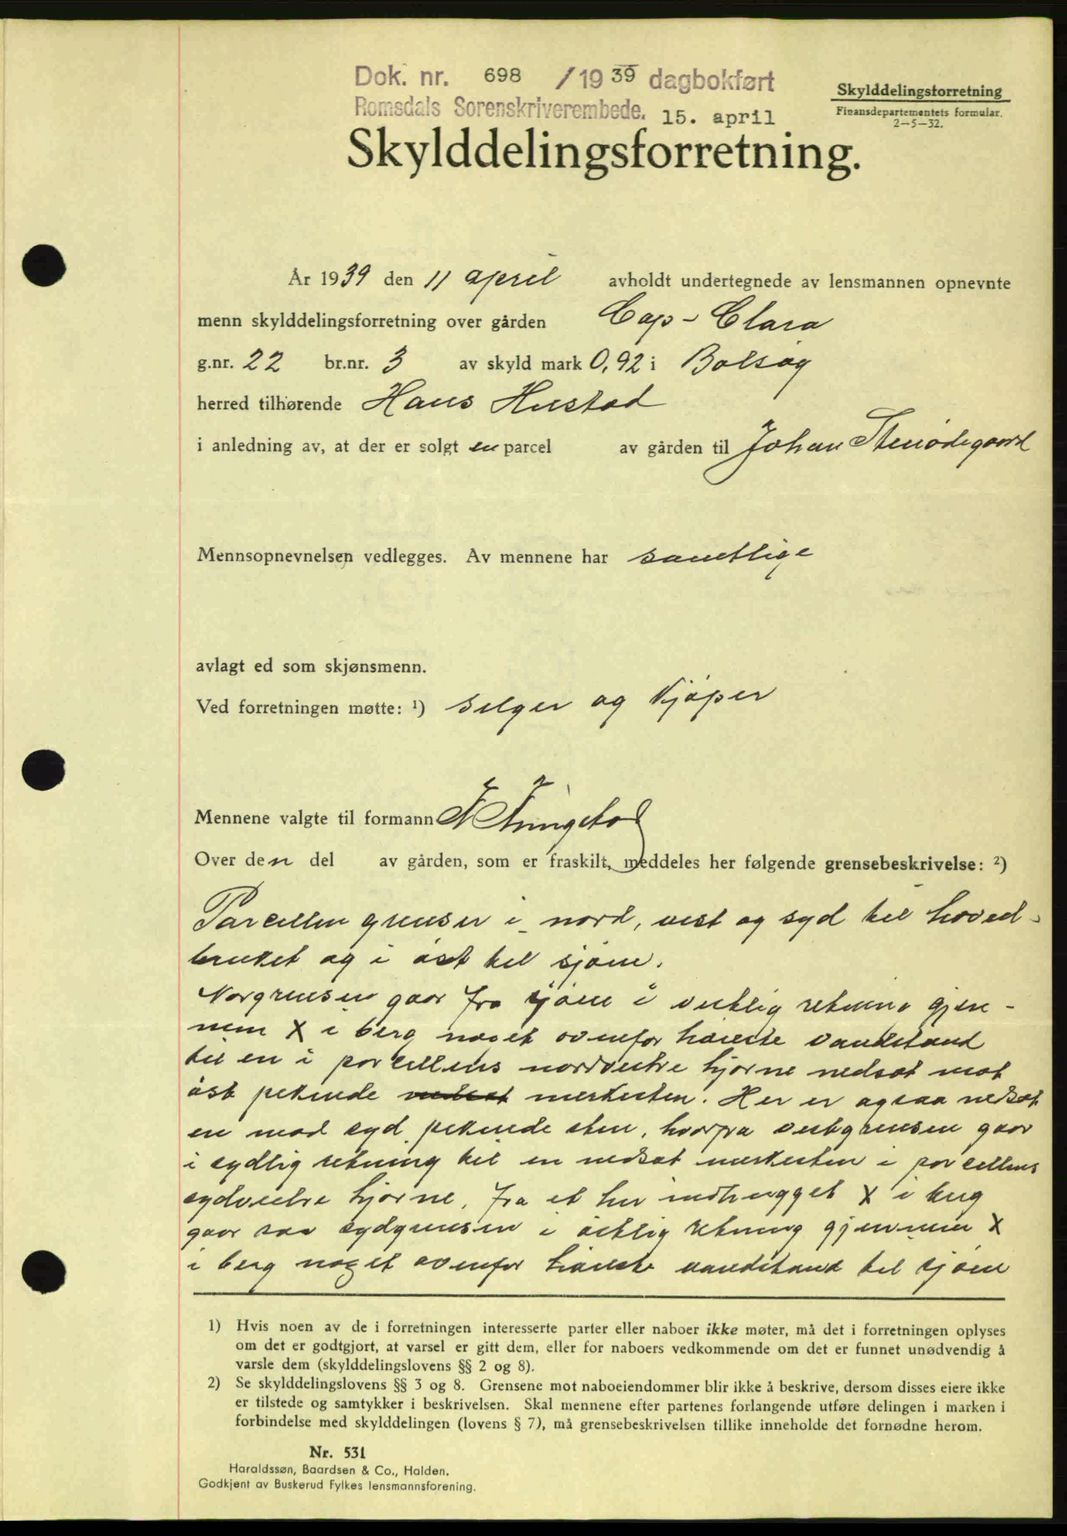 Dok. nr. 698 /1939 dagbokført
Romsdals Sorenskriverembede. 15. april
Skylddelingsforretning
Finansdepartementets formular.
2—5—32.
Skylddelingsforretning.
År 1939 den 11 april avholdt undertegnede av lensmannen opnevnte
menn skylddelingsforretning over gården Cap - Clara
g.nr. 22 br.nr. 3 av skyld mark 0,92 i Bolsøy
herred tilhørende Hans Hustad
i anledning av, at der er solgt en parcel av gården til Johan
Mennsopnevnelsen vedlegges. Av mennene har samtlige
avlagt ed som skjønsmenn.
Ved forretningen møtte: ¹) selger og kjøper
Mennene valgte til formann
Over den del av gården, som er fraskilt, meddeles her følgende grensebeskrivelse: ²)
Parcellen grenser i nord, vest og syd til hoved-
bruket og i øst til sjøen.
Norgrensen gaar fra sjøen i vestlig retning gjen-
nem X i berg noget ovenfor høieste vandstand
til en i parcellens nordvestre hjørne nedsat mot
øst pekende nedsat merkesten. Her er ogsaa nedsat
en mod syd pekende sten, hvorfra vestgrensen gaar
i sydlig retning til en nedsat merkesten i parcellens
sydvestre hjørne, fra et her indhugget X i berg
gaar saa sydgrensen i østlig retning gjennem X
i berg noget ovenfor høieste vandstand til sjøen
1) Hvis noen av de i forretningen interesserte parter eller naboer ikke møter, må det i forretningen oplyses
om det er godtgjort, at varsel er gitt dem, eller for naboers vedkommende om det er funnet unødvendig å
varsle dem (skylddelingslovens §§ 2 og 8).
2) Se skylddelingslovens §§ 3 og 8. Grensene mot naboeiendommer blir ikke å beskrive, dersom disses eiere ikke
er tilstede og samtykker i beskrivelsen. Skal mennene efter partenes forlangende utføre delingen i marken i
forbindelse med skylddelingen (lovens § 7), må grensebeskrivelsen tillike inneholde det fornødne herom.
Nr. 531
Haraldssøn, Baardsen & Co., Halden.
Godkjent av Buskerud Fylkes lensmannsforening.